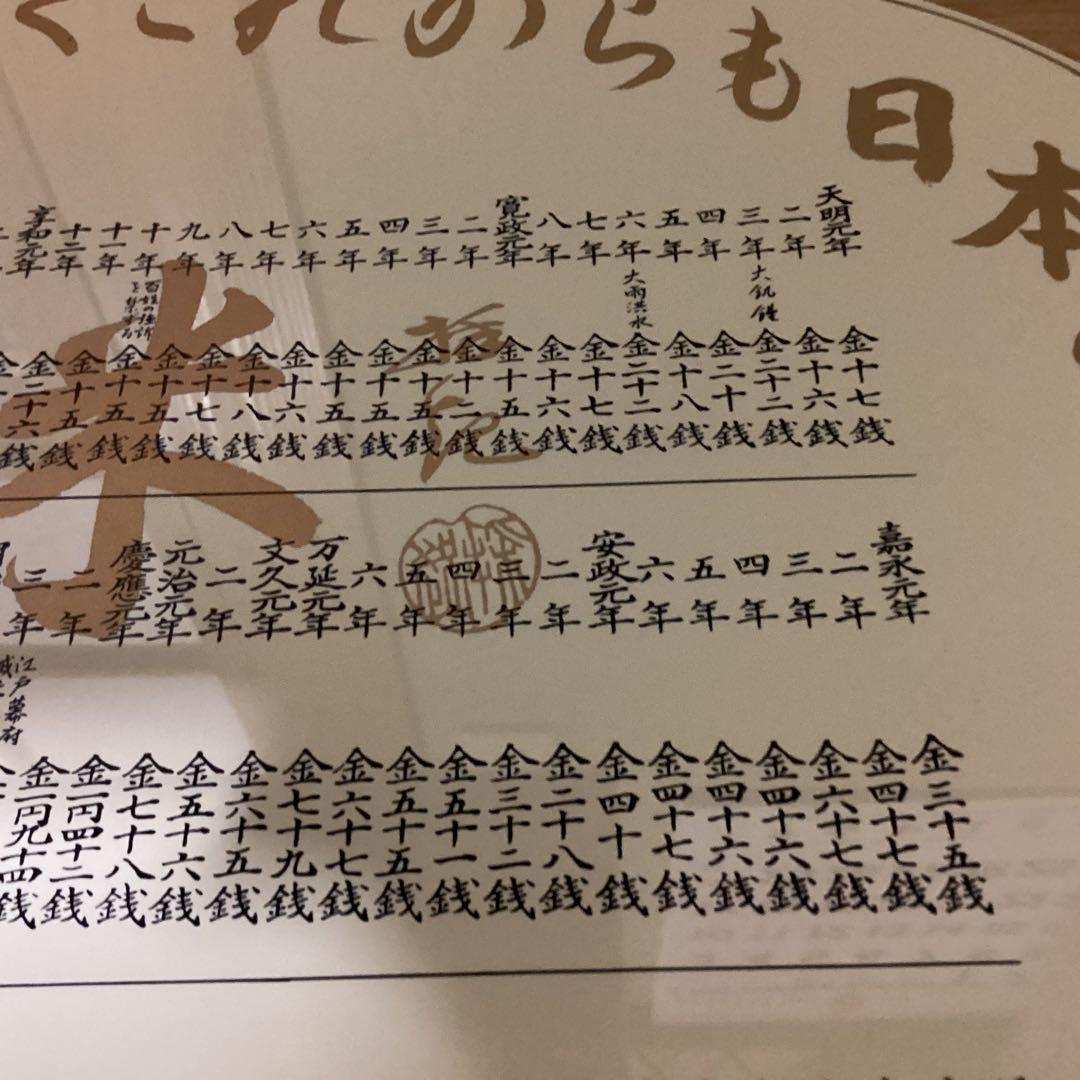 これからも日本
天明元年 金十七銭
二年 金十六銭
三年 大飢饉 金二十二銭
四年 金二十銭
五年 金十八銭
六年 大雨洪水 金二十二銭
七年 金十七銭
八年 金十六銭
寛政元年 金十五銭
二年 金十二銭
三年 金十五銭
四年 金十五銭
五年 金十五銭
六年 金十六銭
七年 金十八銭
八年 金十七銭
九年 金十五銭
十年 百姓の強訴 金十五銭
十一年 金十五銭
十二年 金二十六銭
享和元年
米
嘉永元年 金三十五銭
二年 金四十七銭
三年 金六十七銭
四年 金四十六銭
五年 金四十六銭
六年 金四十七銭
安政元年 金四十銭
二年 金二十八銭
三年 金三十二銭
四年 金五十一銭
五年 金五十五銭
六年 金六十七銭
万延元年 金七十九銭
文久元年 金六十五銭
二年 金五十六銭
元治元年 金七十八銭
慶應元年 金一円四十二銭
二年 金一円九十四銭
三年 江戸幕府